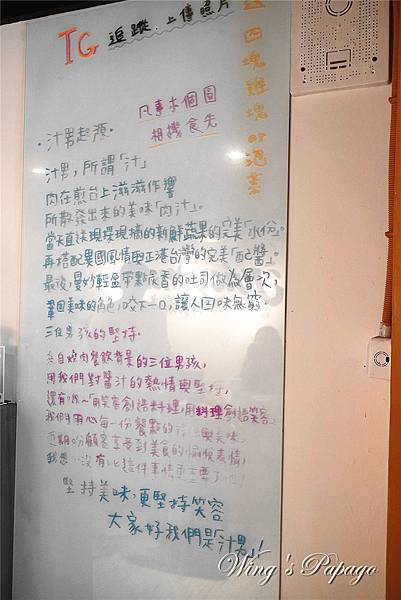 IG 追蹤.上傳照片
送四塊雞塊or泡菜
凡事本個圓
相機食先
·汁男起源·
汁男,所謂「汁」
肉在煎台上滋滋作響
所散發出來的美味「肉汁」。
當天直送現採現摘的新鮮蔬果的完美「水份」。
再搭配異國風情與正港台灣的完美「配醬」。
最後,要炒輕盈帶點辰香的吐司做為層次,
鞏固美味的角色,咬下一口,讓人回味無窮。
三位男孩的堅持。
來自燒肉餐飲背景的三位男孩,
用我們對醬汁的熱情與堅持,
還有 用笑容創造料理,用料理創造笑容。
我們用心每一份餐點的 與美味,
期盼顧客享受到美食的愉悅表情,
我想 沒有比這件事情更重要了吧!
堅持美味,更堅持笑容
大家好我們是汁男!
Wing's Papago